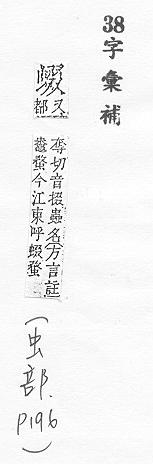 38字彙補
蝃又都
奪切音掇蟲名方言註
蝥今江東呼蝃蝥
(虫部. P196)